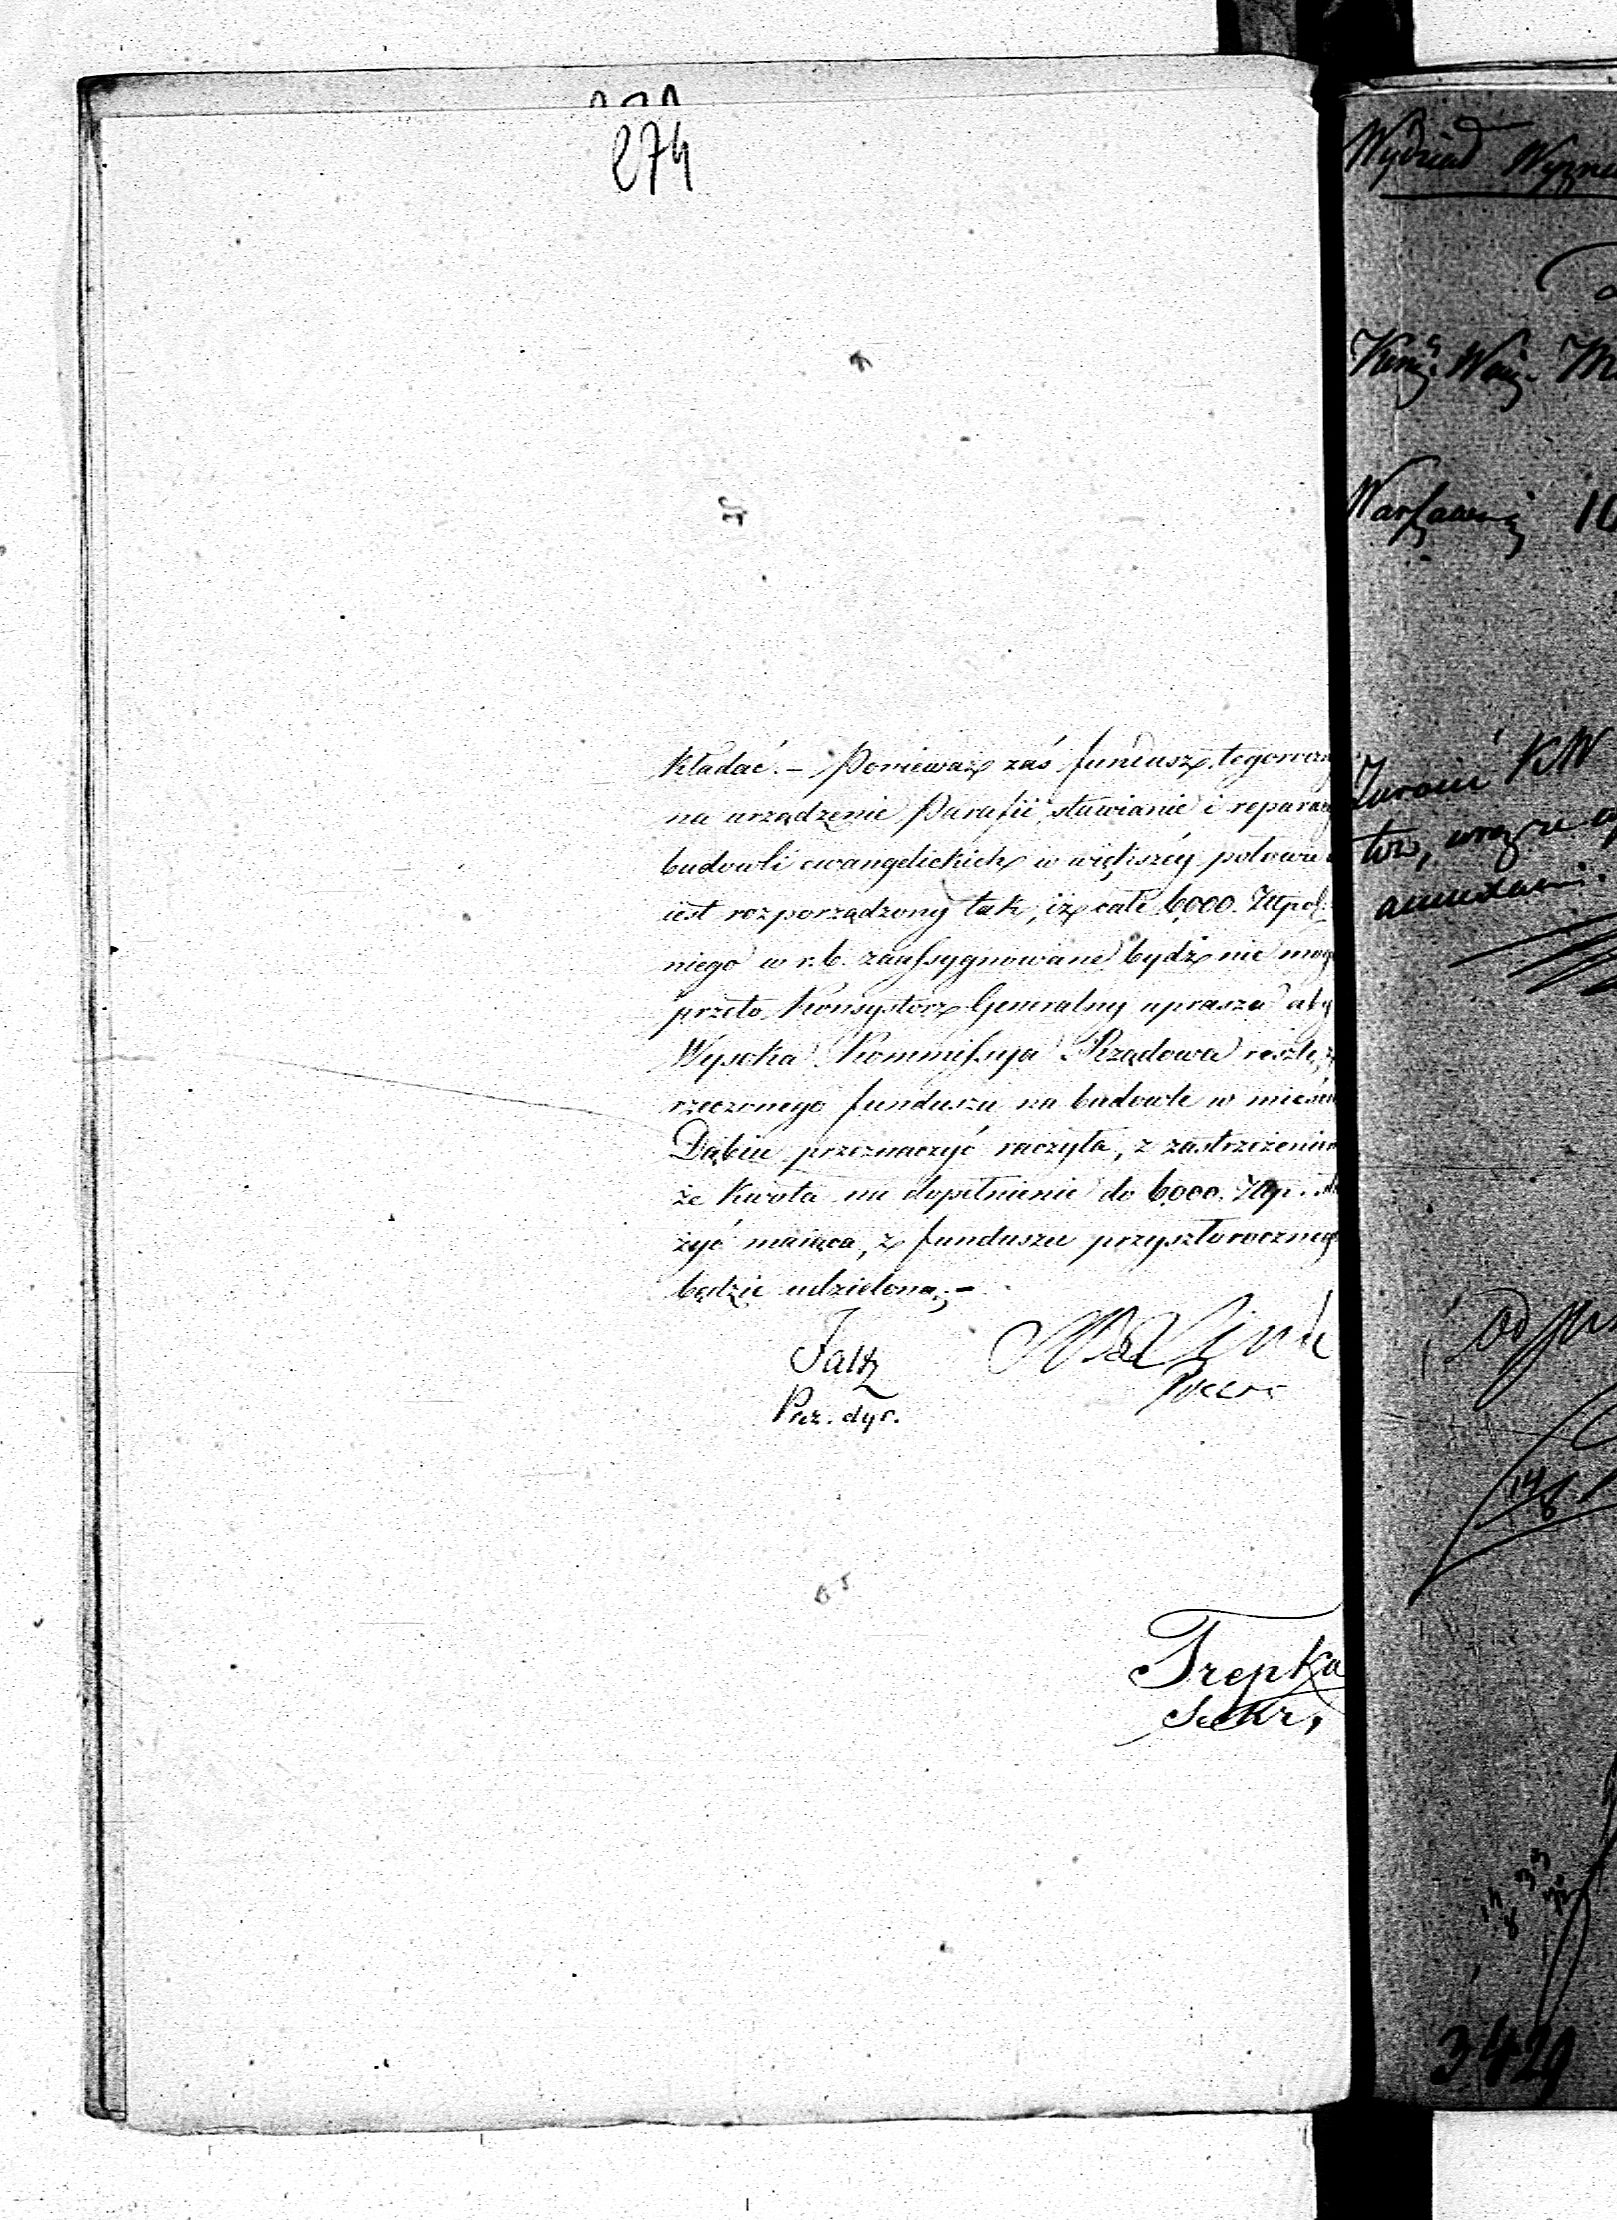 274
kładać. – Ponieważ zaś fundusz tegoroczn
na urządzenie Parafii, stawianie i reparac
budowli ewangelickich w większéy połowie
iest rozporządzony tak, iż całe 6,000. Złpol.
niego w r.b. zaassygnowane bydź nie mog
przeto Konsystorz Generalny uprasza aby
Wysoka Kommissyja Rządowa resztę, z
rzeczonego funduszu na budowle w mieście
Dąbiu przeznaczyć raczyła, z zastrzeżeniem
że kwota na dopełnienie do 6,000. Złp.
żyć maiąca, z funduszu przyszłorocznego
będzie udzielona. –
Prez. dyr.
Trepka
Sekr.
Wydział Wyzna
Warszawa
Zwrócić KW
3429